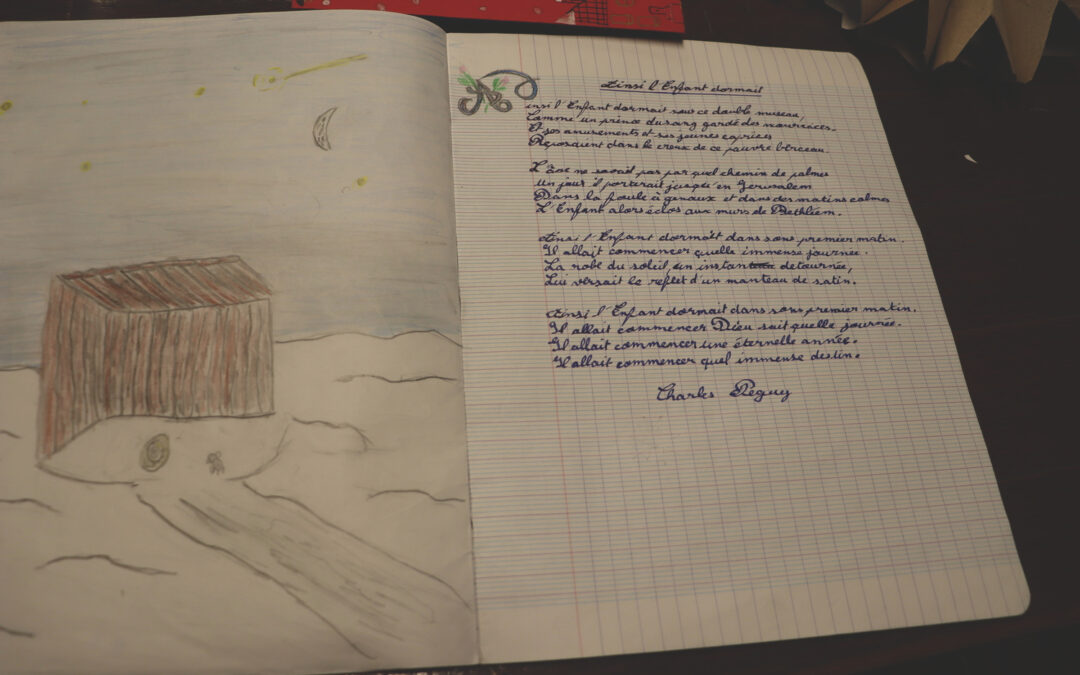 Ainsi l'Enfant dormait
Ainsi l'Enfant dormait sous ce double museau,
Comme un prince du sang gardé des nourrices.
Et ses amusements et ses jeunes caprices
Reposaient dans le creux de ce pauvre berceau.
L'âne ne savait pas par quel chemin de palmes
un jour il porterait jusqu'en Jerusalem
Dans la foule à genoux et dans des matins calmes
L'Enfant alors éclos aux murs de Bethléem.
Ainsi l'Enfant dormait dans sons premier matin.
Il allait commencer quelle immense journée.
La robe du soleil, un instant detournée,
Lui versait le reflet d'un manteau de satin.
Ainsi l'Enfant dormait dans sons premier matin.
Il allait commencer Dieu sait quelle journée.
Il allait commencer une éternelle année.
Il allait commencer quel immense destin.
Charles Péguy